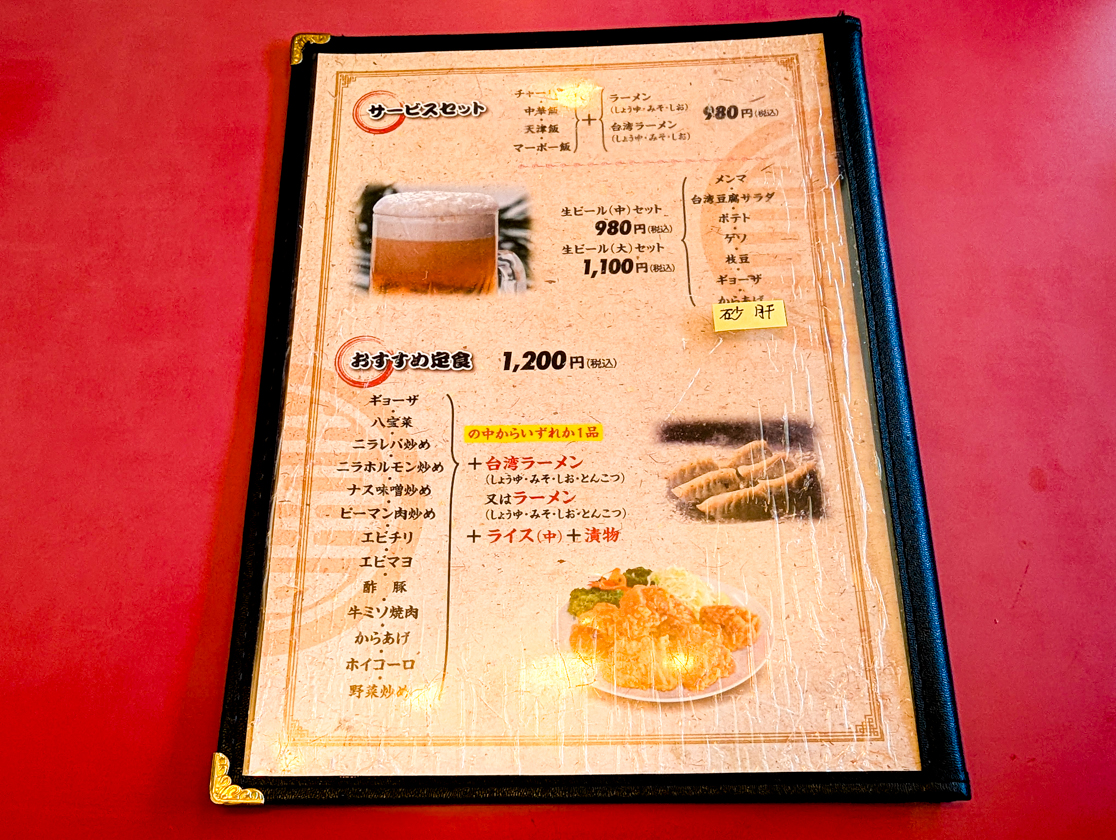 サービスセット
チャー
中華飯
天津飯
マーボー飯
+
ラーメン
(しょうゆ・みそ・しお)
台湾ラーメン
(しょうゆ・みそ・しお)
980円(税込)
生ビール(中)セット
980円(税込)
生ビール(大)セット
1,100円(税込)
メンマ
台湾豆腐サラダ
ポテト
ゲソ
枝豆
ギョーザ
からあげ
砂肝
おすすめ定食 1,200円(税込)
ギョーザ
八宝菜
ニラレバ炒め
ニラホルモン炒め
ナス味噌炒め
ピーマン肉炒め
エビチリ
エビマヨ
酢豚
牛ミソ焼肉
からあげ
ホイコーロ
野菜炒め
の中からいずれか1品
+台湾ラーメン
(しょうゆ・みそ・しお・とんこつ)
又はラーメン
(しょうゆ・みそ・しお・とんこつ)
+ライス(中)+漬物